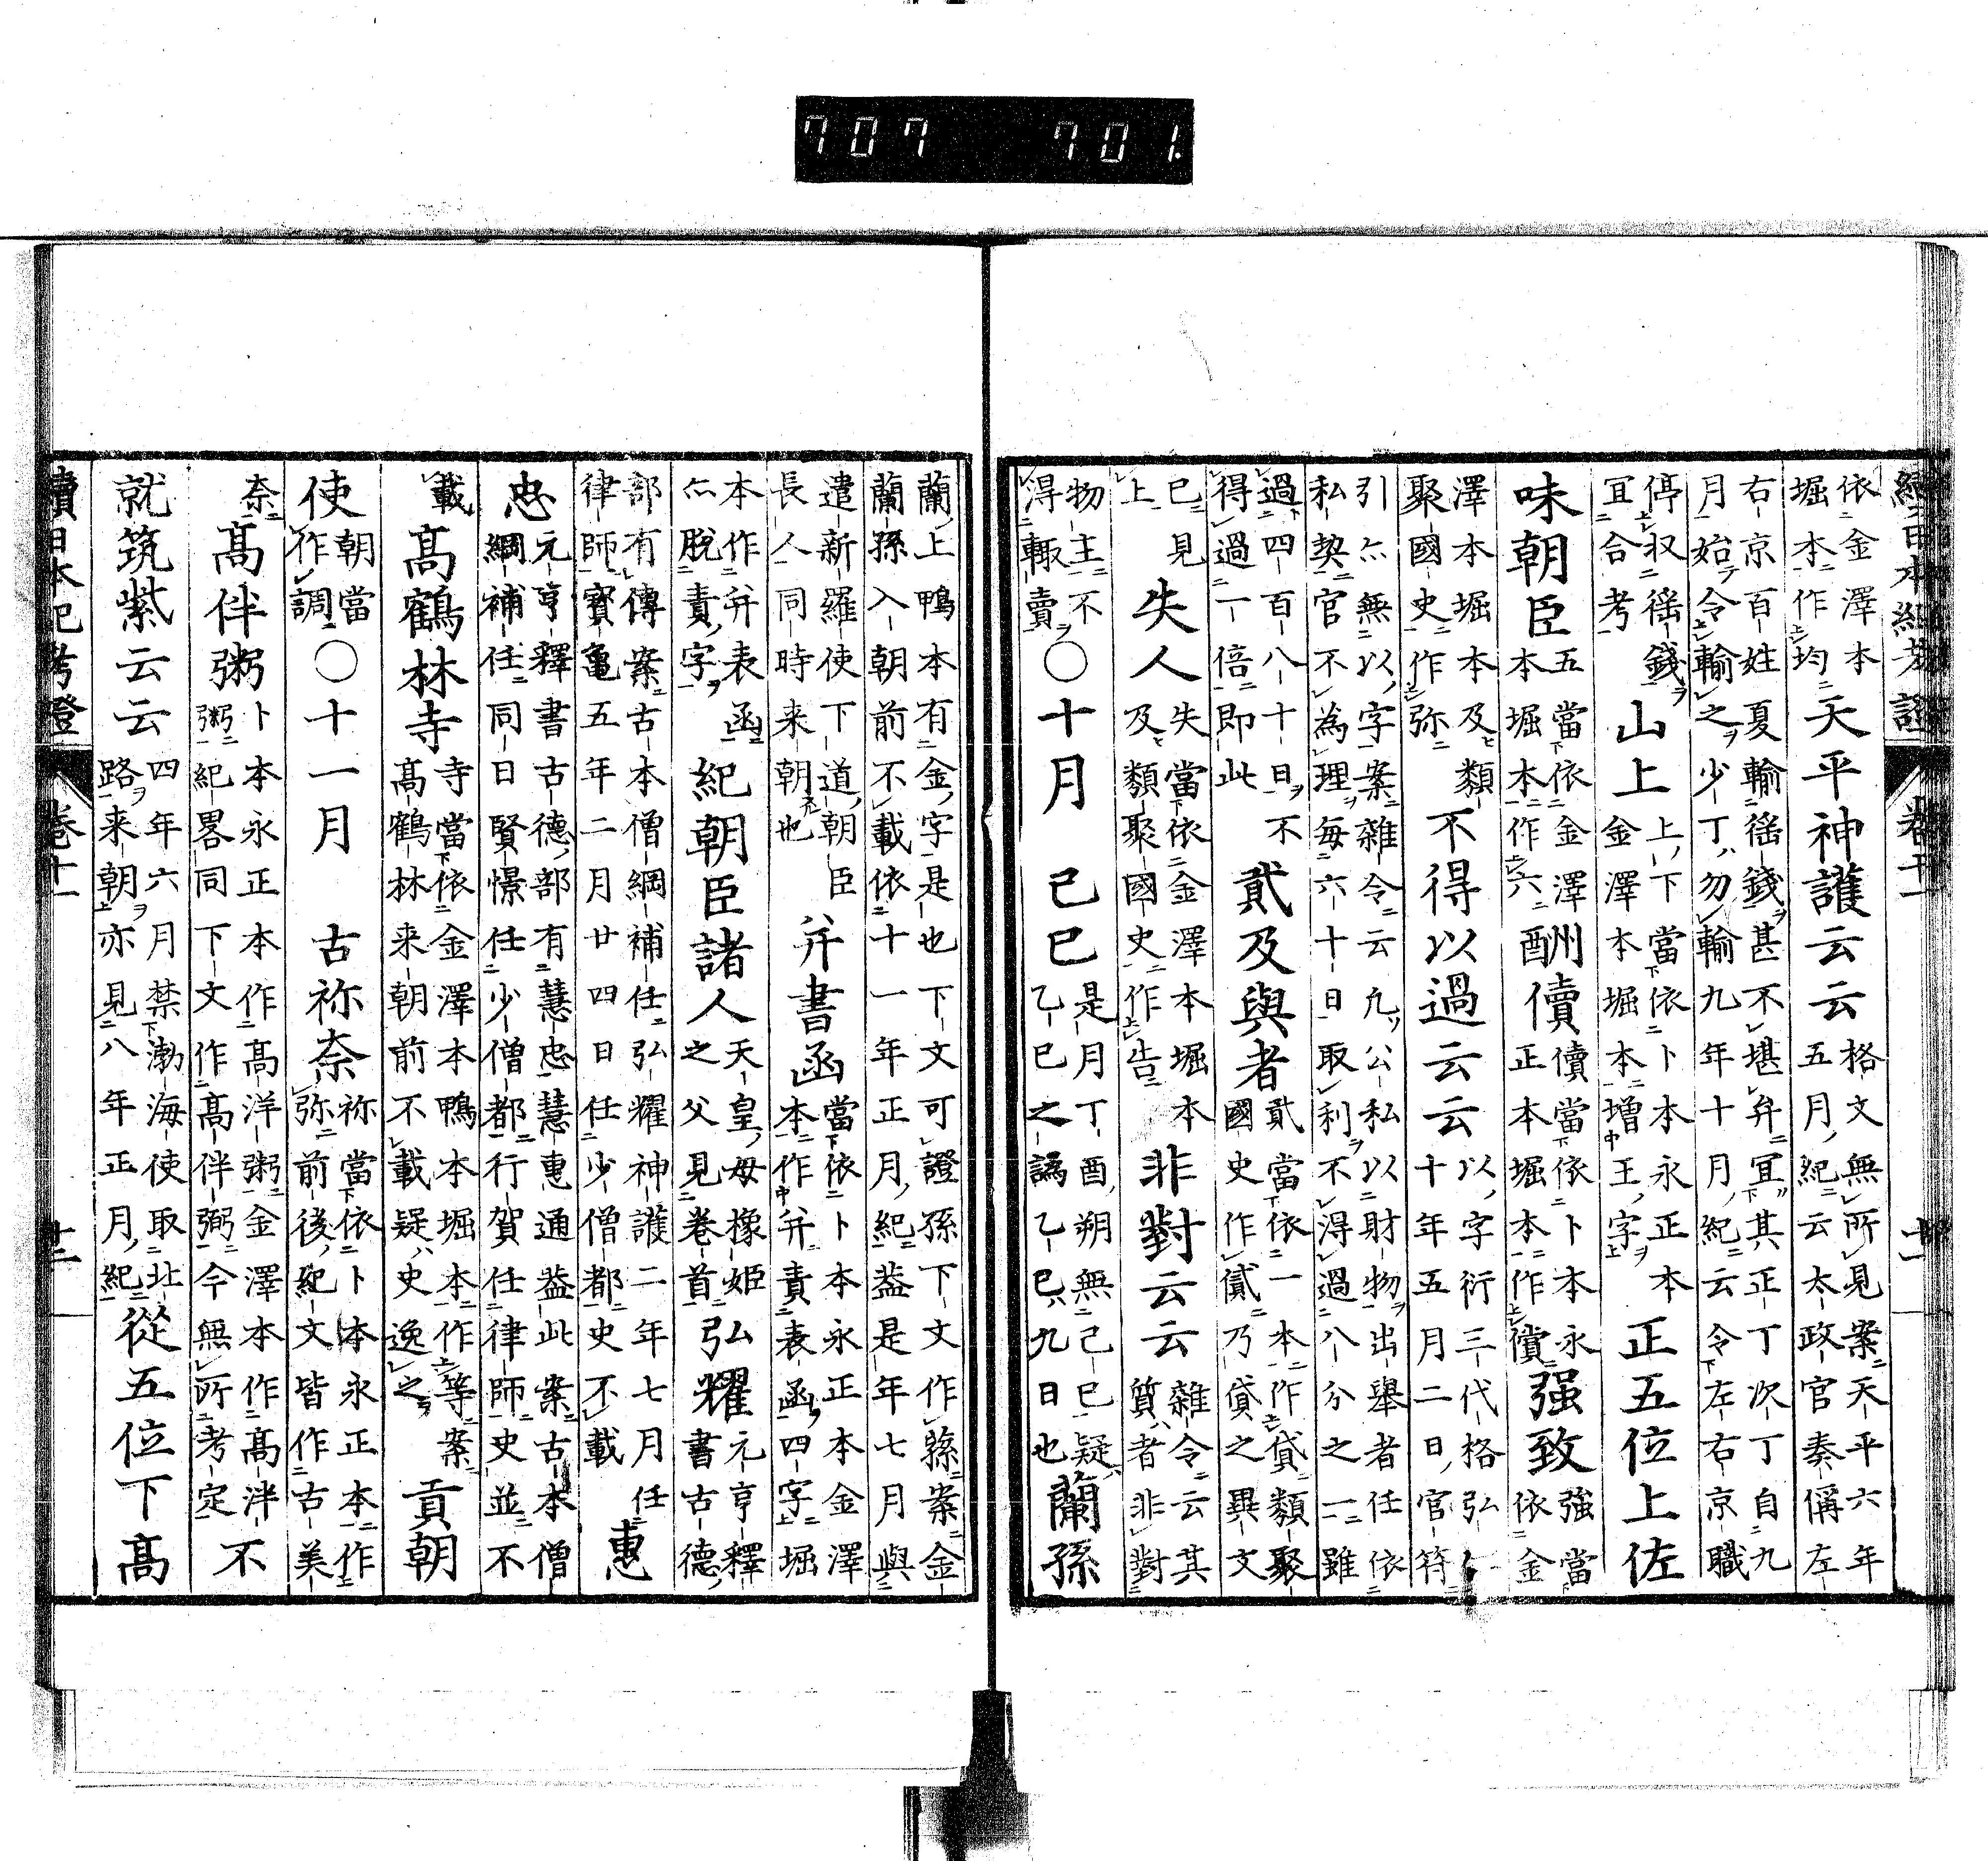 續日本紀考證 卷十一 十一
依金澤本堀本作均天平神護云云格文無所見案天平六年五月紀云太政官奏偁左
右京百姓夏輸徭錢甚不堪弁宜其正丁次丁自九月始令輸之少丁勿輸九年十月紀云令左右京職
停収徭錢冝合考山上上下當依卜本永正本金澤本堀本增王字正五位上佐
味朝臣五當依金澤本堀本作六酬償償當依卜本永正本堀本作償强致強當依金
澤本堀本及類聚國史作弥不得以過云云以字衍三代格弘仁十年五月二日官符
引亦無以字案雜令云凡公私以財物出舉者任依私契官不為理每六十日取利不得過八分之一雖
過四百八十日不得過一倍即此貳及與者貳當依一本作貸類聚國史作貣乃貸之異文
已見上失人失當依金澤本堀本及類聚國史作告非對云云雜令云其質者非對
物主不得輙賣〇十月 己巳是月丁酉朔無己巳疑乙巳之譌乙巳九日也蘭孫
蘭上鴨本有金字是也下文可證孫下文作蓀案金蘭孫入朝前不載依十一年正月紀葢是年七月與
遣新羅使下道朝臣長人同時来朝也并書函當依卜本永正本金澤本作并責表函四字堀
本作并表函亦脫責字紀朝臣諸人之天皇母橡姬父見卷首弘耀元亨釋書古德
部有傳案古本僧綱補任弘耀神護二年七月任律師寳龜五年二月廿四日任少僧都史不載惠
忠元亨釋書古德部有慧忠慧惠通葢此案古本僧綱補任同日賢憬任少僧都行賀任律師史並不
載高鶴林寺寺當依金澤本鴨本堀本作等案高鶴林来朝前不載疑史逸之貢朝
使朝當作調〇十一月 古祢奈祢當依卜本永正本作弥前後紀文皆作古美
奈高伴粥卜本永正本作高洋粥金澤本作高泮粥紀畧同下文作高伴弼今無所考定不
就筑紫云云四年六月禁渤海使取北路来朝亦見八年正月紀從五位下高
續日本紀考證 卷十一 十二
707 701.